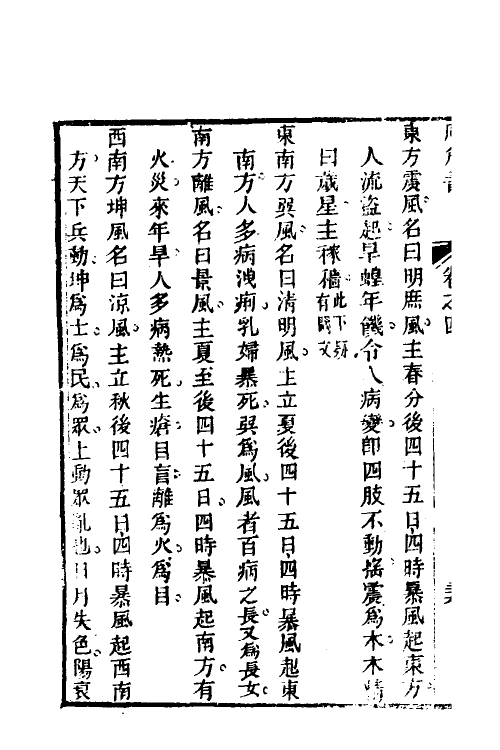 卷之四
東方震風名曰明庶風主春分後四十五日四時暴風起東方
人流盜起旱蝗年饑令人病變節四肢不動搖震為木木精
曰歲星主稼穡此下疑有闕文
東南方巽風名曰清明風主立夏後四十五日四時暴風起東
南方人多病洩痢乳婦暴死巽為風風者百病之長又為長女
南方離風名曰景風主夏至後四十五日四時暴風起南方有
火災來年旱人多病熱死生瘡目盲離為火為目
西南方坤風名曰涼風主立秋後四十五日四時暴風起西南
方天下兵動坤為土為民為眾土動眾亂也日月失色陽衰